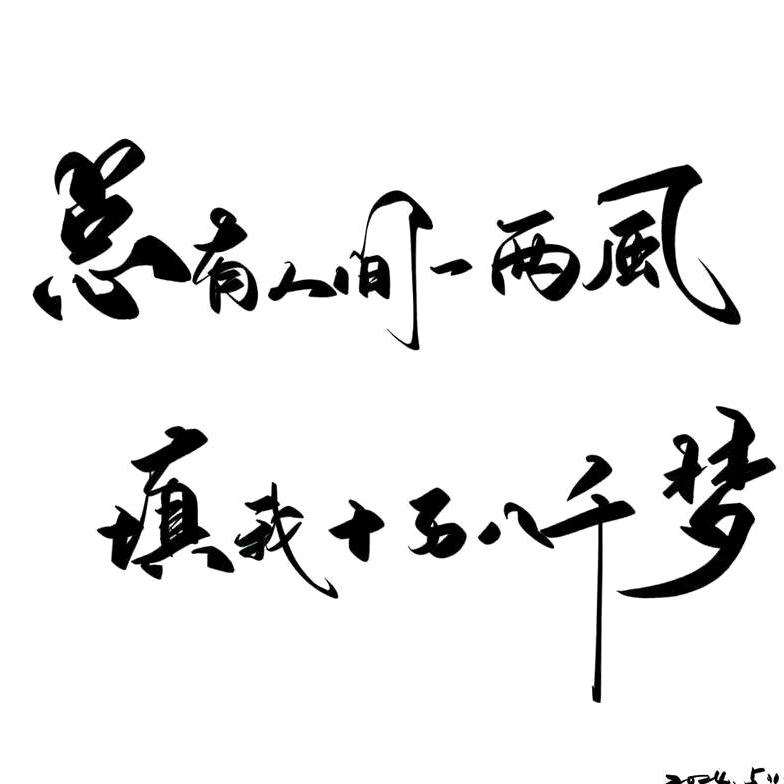 总有人间一两風
填我十万八千梦
2024.5.11